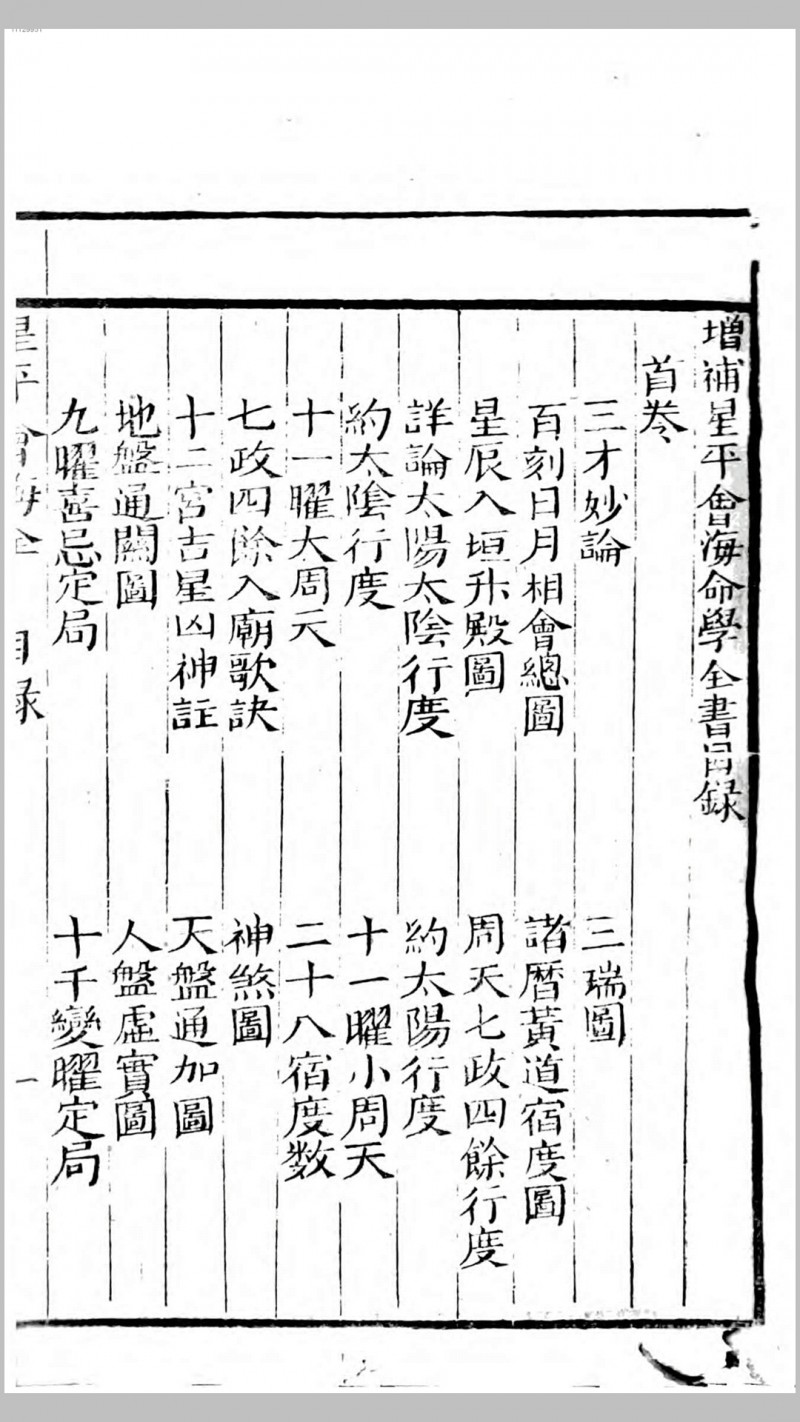 增補星平會海命學全書目録
首卷
三才妙論
三瑞圖
百刻日月相會總圖
諸曆黃道宿度圖
星辰入垣升殿圖
周天七政四餘行度
詳論太陽太陰行度
約太陽行度
約太陰行度
十一曜小周天
十一曜大周天
二十八宿度数
七政四餘入廟歌訣
神煞圖
十二宮吉星凶神註
天盤通加圖
地盤通關圖
人盤虛實圖
九曜喜忌定局
十千變曜定局
星平會海全 目录
一